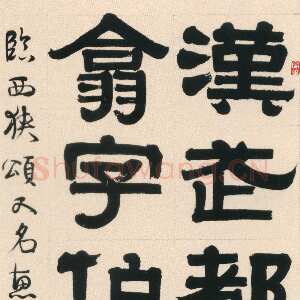 漢武都
翕字伯
臨西狹頌又名惠
ShufaWang.CN